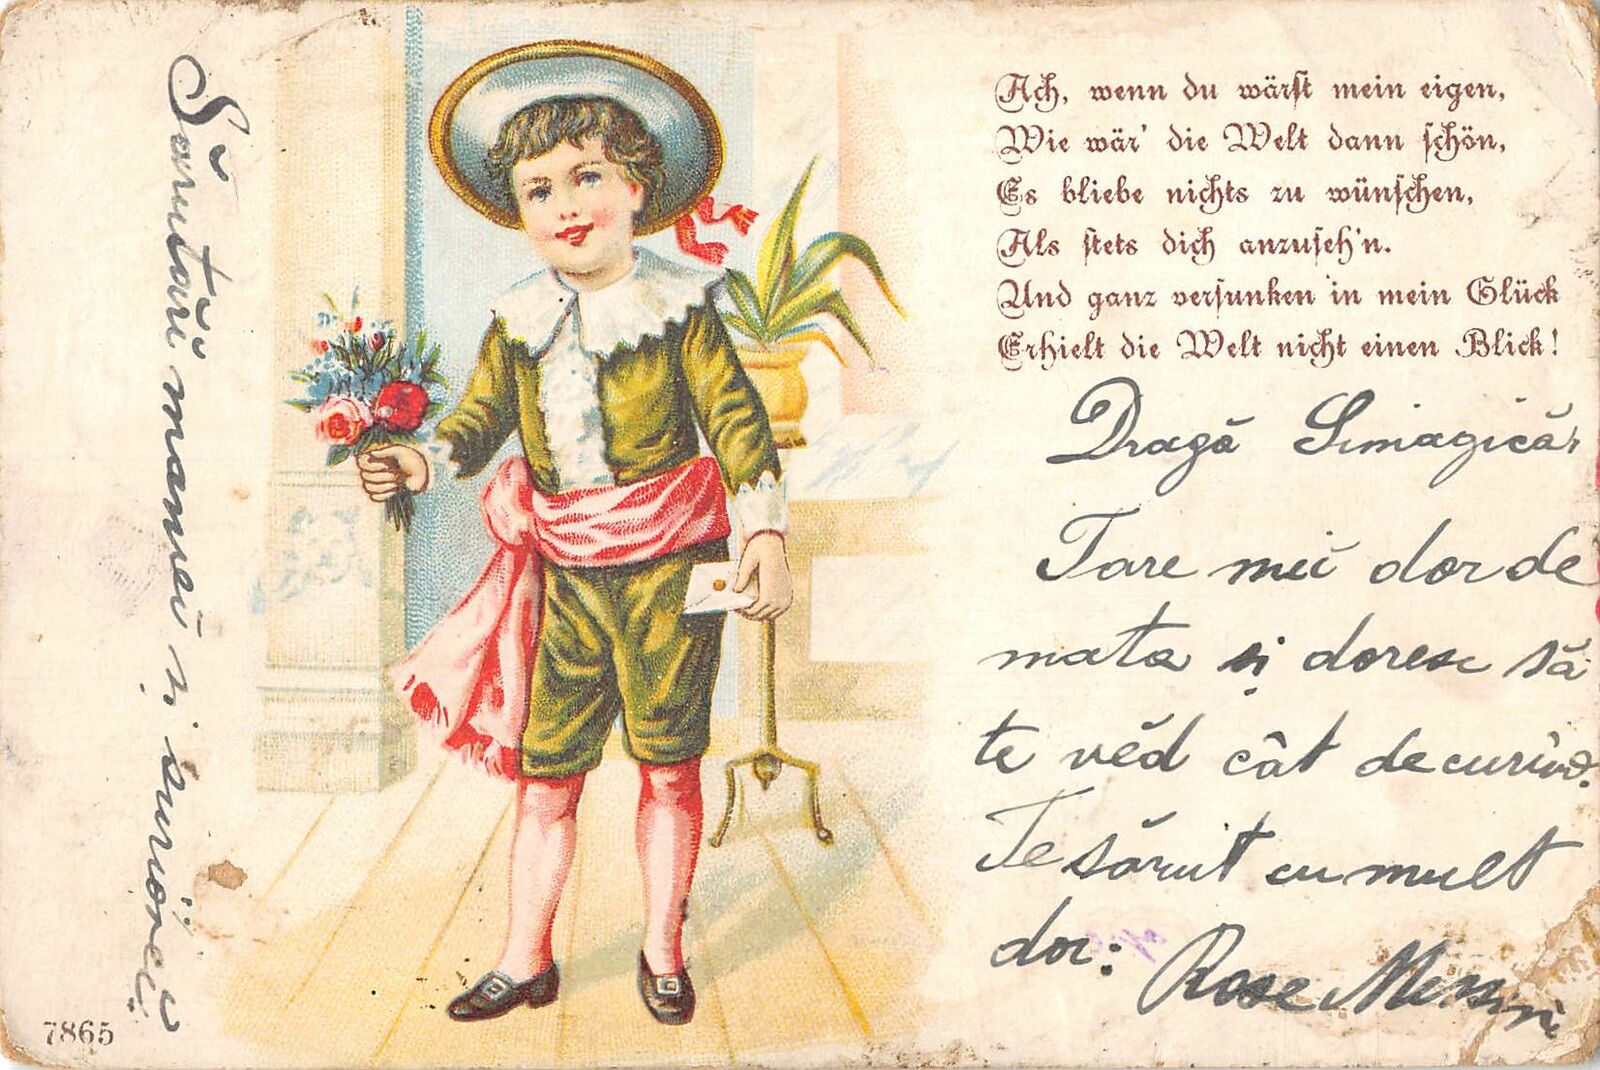 Ach, wenn du wärst mein eigen,
Wie wär' die Welt dann schön,
Es bliebe nichts zu wünschen,
Als stets dich anzuseh'n.
Und ganz versunken in mein Glück
Erhielt die Welt nicht einen Blick!
Dragă
Tare mi dor de
mata și doresc să
te věd cât de curînd.
Te sărut cu mult
dor: Rose
Sarutări mamei și surióreĭ
7865